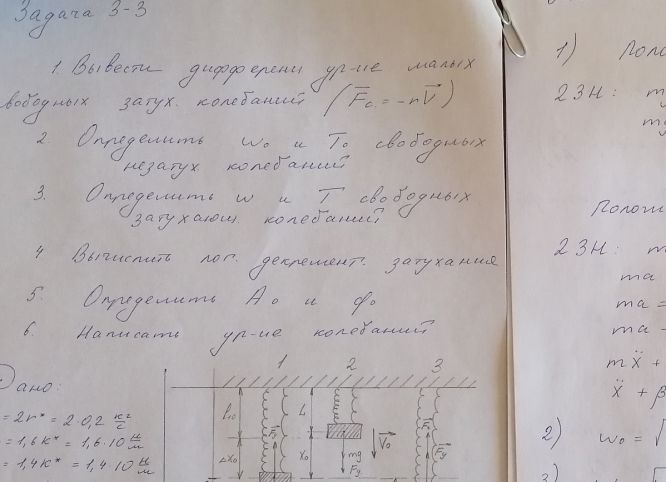 Задача 3-3
1. Вывести дифферени ур-ие малых
вободных затух. колебаний (F⃗c = -rV⃗)
2 Определить ω₀ и T₀ свободных
незатух. колебаний
3. Определить ω и T свободных
затухающ. колебаний
4 Вычислить лог. декремент. затухания
5. Определить A₀ и φ₀
6. Написать ур-ие колебаний
Дано:
= 2r* = 2·0,2 кг/с
= 1,6k* = 1,6·10 н/м
= 1,4k* = 1,4·10 н/м
1 2 3
l₁₀ L
F⃗ V⃗₀ F⃗y
Δx₀ x₀ mg
Fy
1) Поло
2 ЗН: m
Положи
2 ЗН: m
ma
ma =
ma -
mẍ +
ẍ + β
2) ω₀ = √
3)